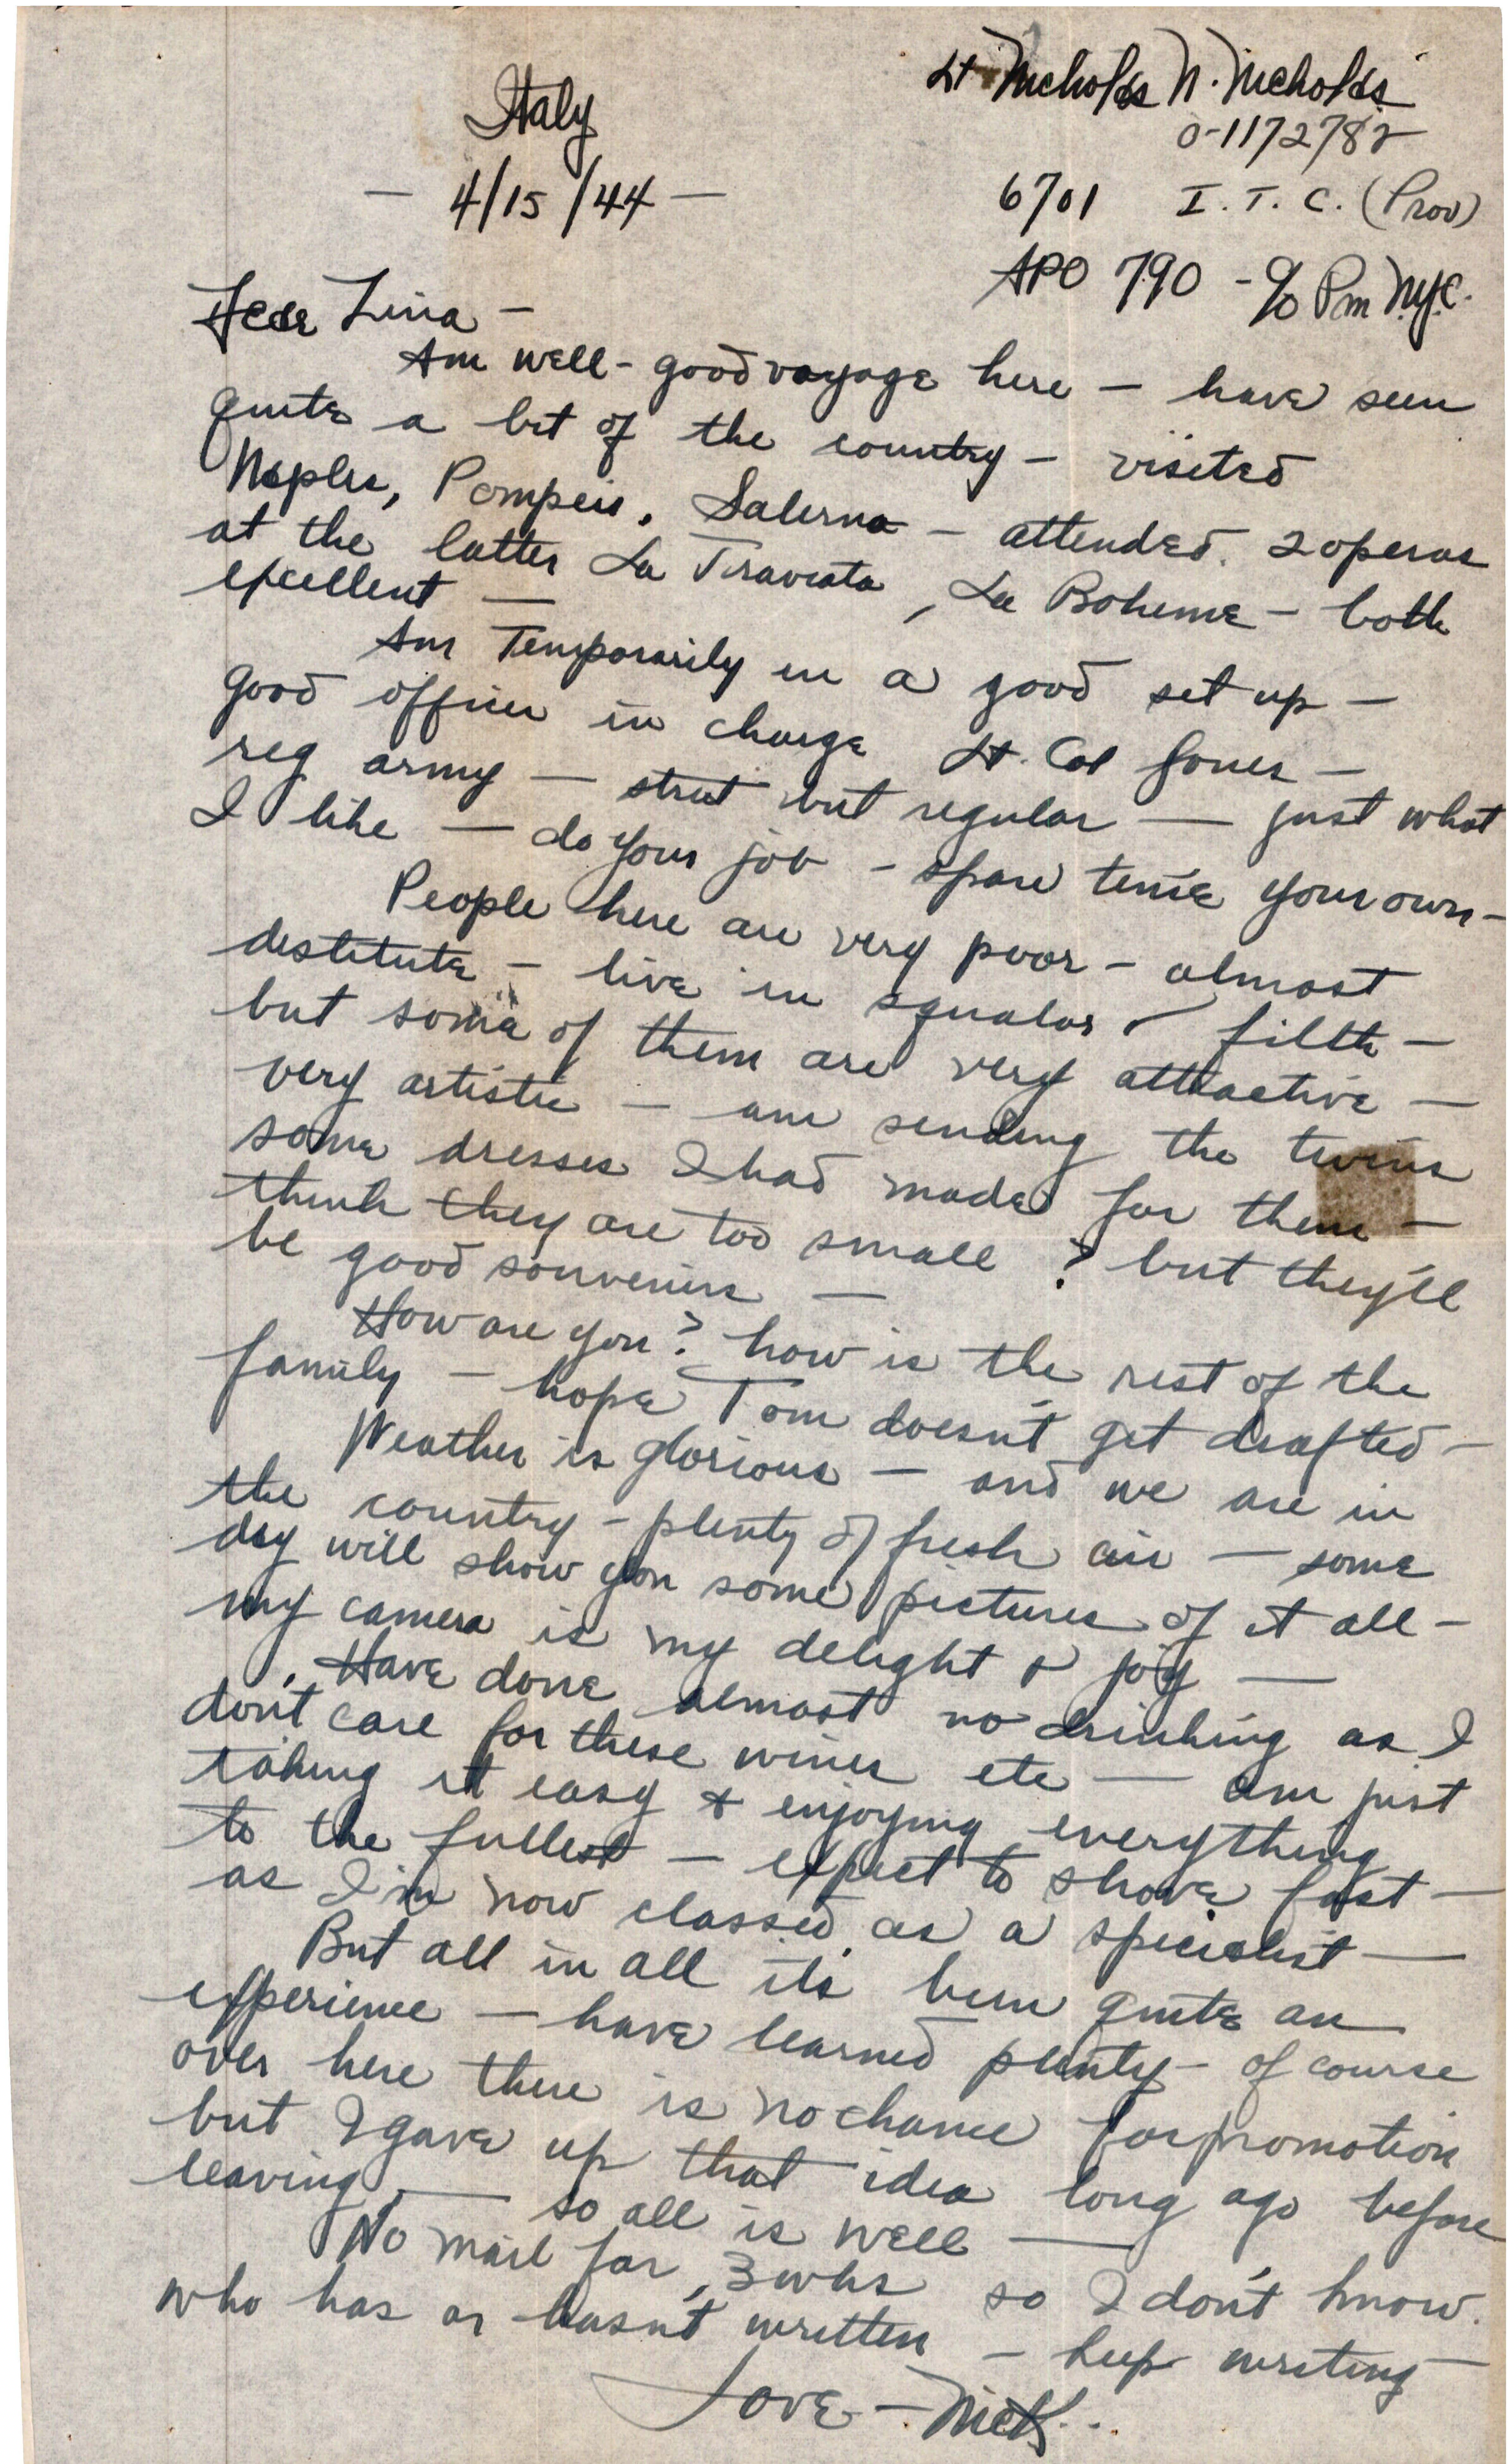 Lt Nicholas N. Nicholas
Italy
0-1172782
- 4/15/44 -
6701 I. T. C. (Prov)
APO 790 - c/o Pm N.Y.C.
Dear Lina -
Am well - good voyage here - have seen
quite a bit of the country - visited
Naples, Pompeii, Salerno - attended 2 operas
at the latter La Traviata, La Boheme - both
excellent -
Am Temporarily in a good set up -
good officer in charge Lt. Col Jones -
reg army - strict but regular - just what
I like - do your job - spare time your own -
People here are very poor - almost
destitute - live in squalor & filth -
but some of them are very attractive -
very artistic - am sending the twins
some dresses I had made for them -
think they are too small ? but they'll
be good souvenirs -
How are you? how is the rest of the
family - hope Tom doesn't get drafted -
Weather is glorious - and we are in
the country - plenty of fresh air - some
day will show you some pictures of it all -
my camera is my delight & joy -
Have done almost no drinking as I
don't care for these wines etc - am just
taking it easy & enjoying everything
to the fullest - expect to shove fast -
as I'm now classed as a specialist -
But all in all it's been quite an
experience - have learned plenty - of course
over here there is no chance for promotion
but I gave up that idea long ago before
leaving - so all is well -
No mail for 3 wks so I don't know
who has or hasn't written - keep writing -
Love - Nick..